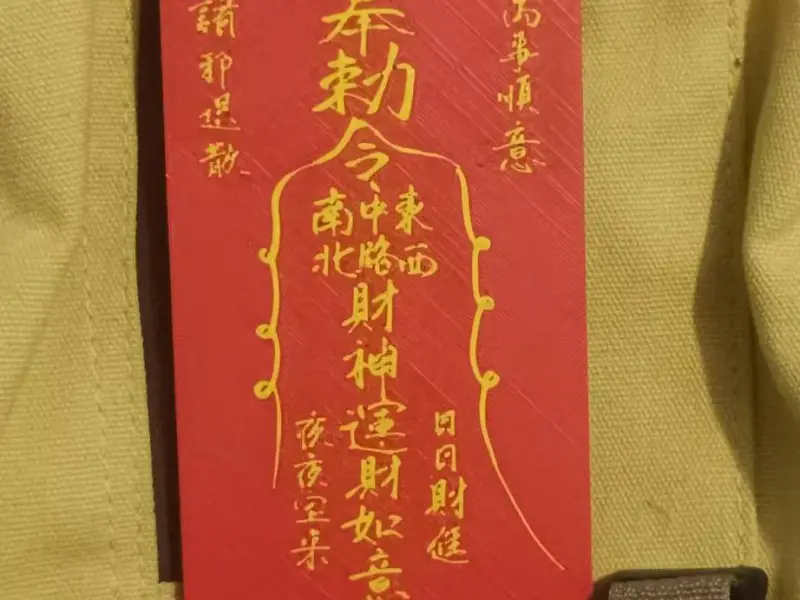 萬事順意
奉勅令
東西
中路
南北
財神運財如意
日日財進
夜夜宝来
諸邪退散